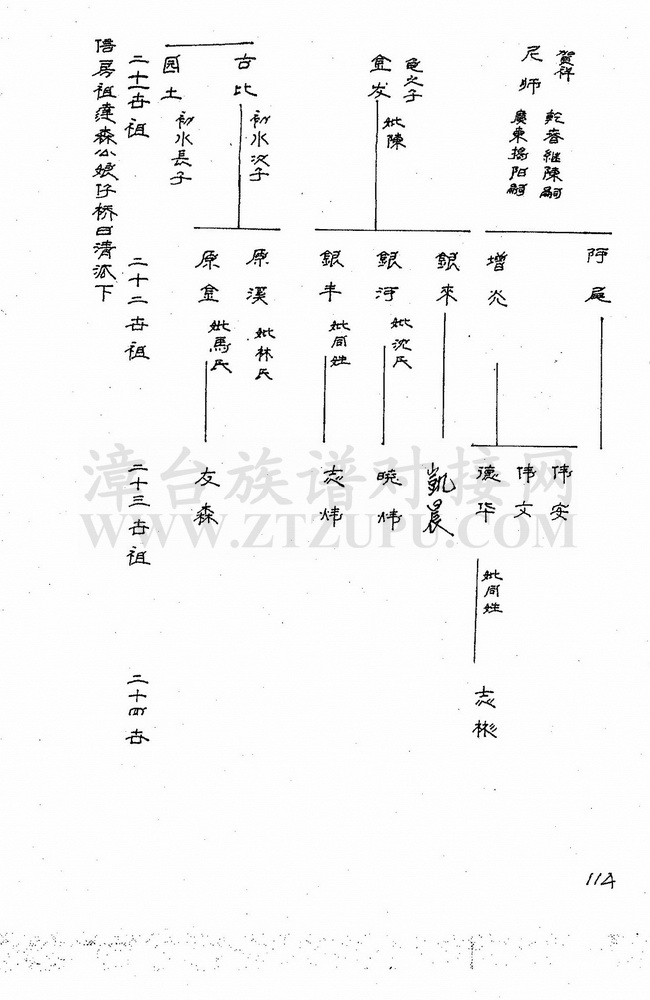 賀祥
尼师
乾眷继陳嗣
廣東揭阳嗣
金发
妣陳
古比
初水次子
园土
初水長子
二十一世祖
阿
增炎
銀來
銀河
妣沈氏
銀丰
妣同姓
原溪
妣林氏
原金
妣馬氏
二十二世祖
伟安
伟文
德华
妣同姓
凯晨
晓炜
志炜
友森
二十三世祖
志彬
二十四世
房祖達森公娘仔桥日清派下
漳台族谱对接网
WWW.ZTZUPU.COM
114